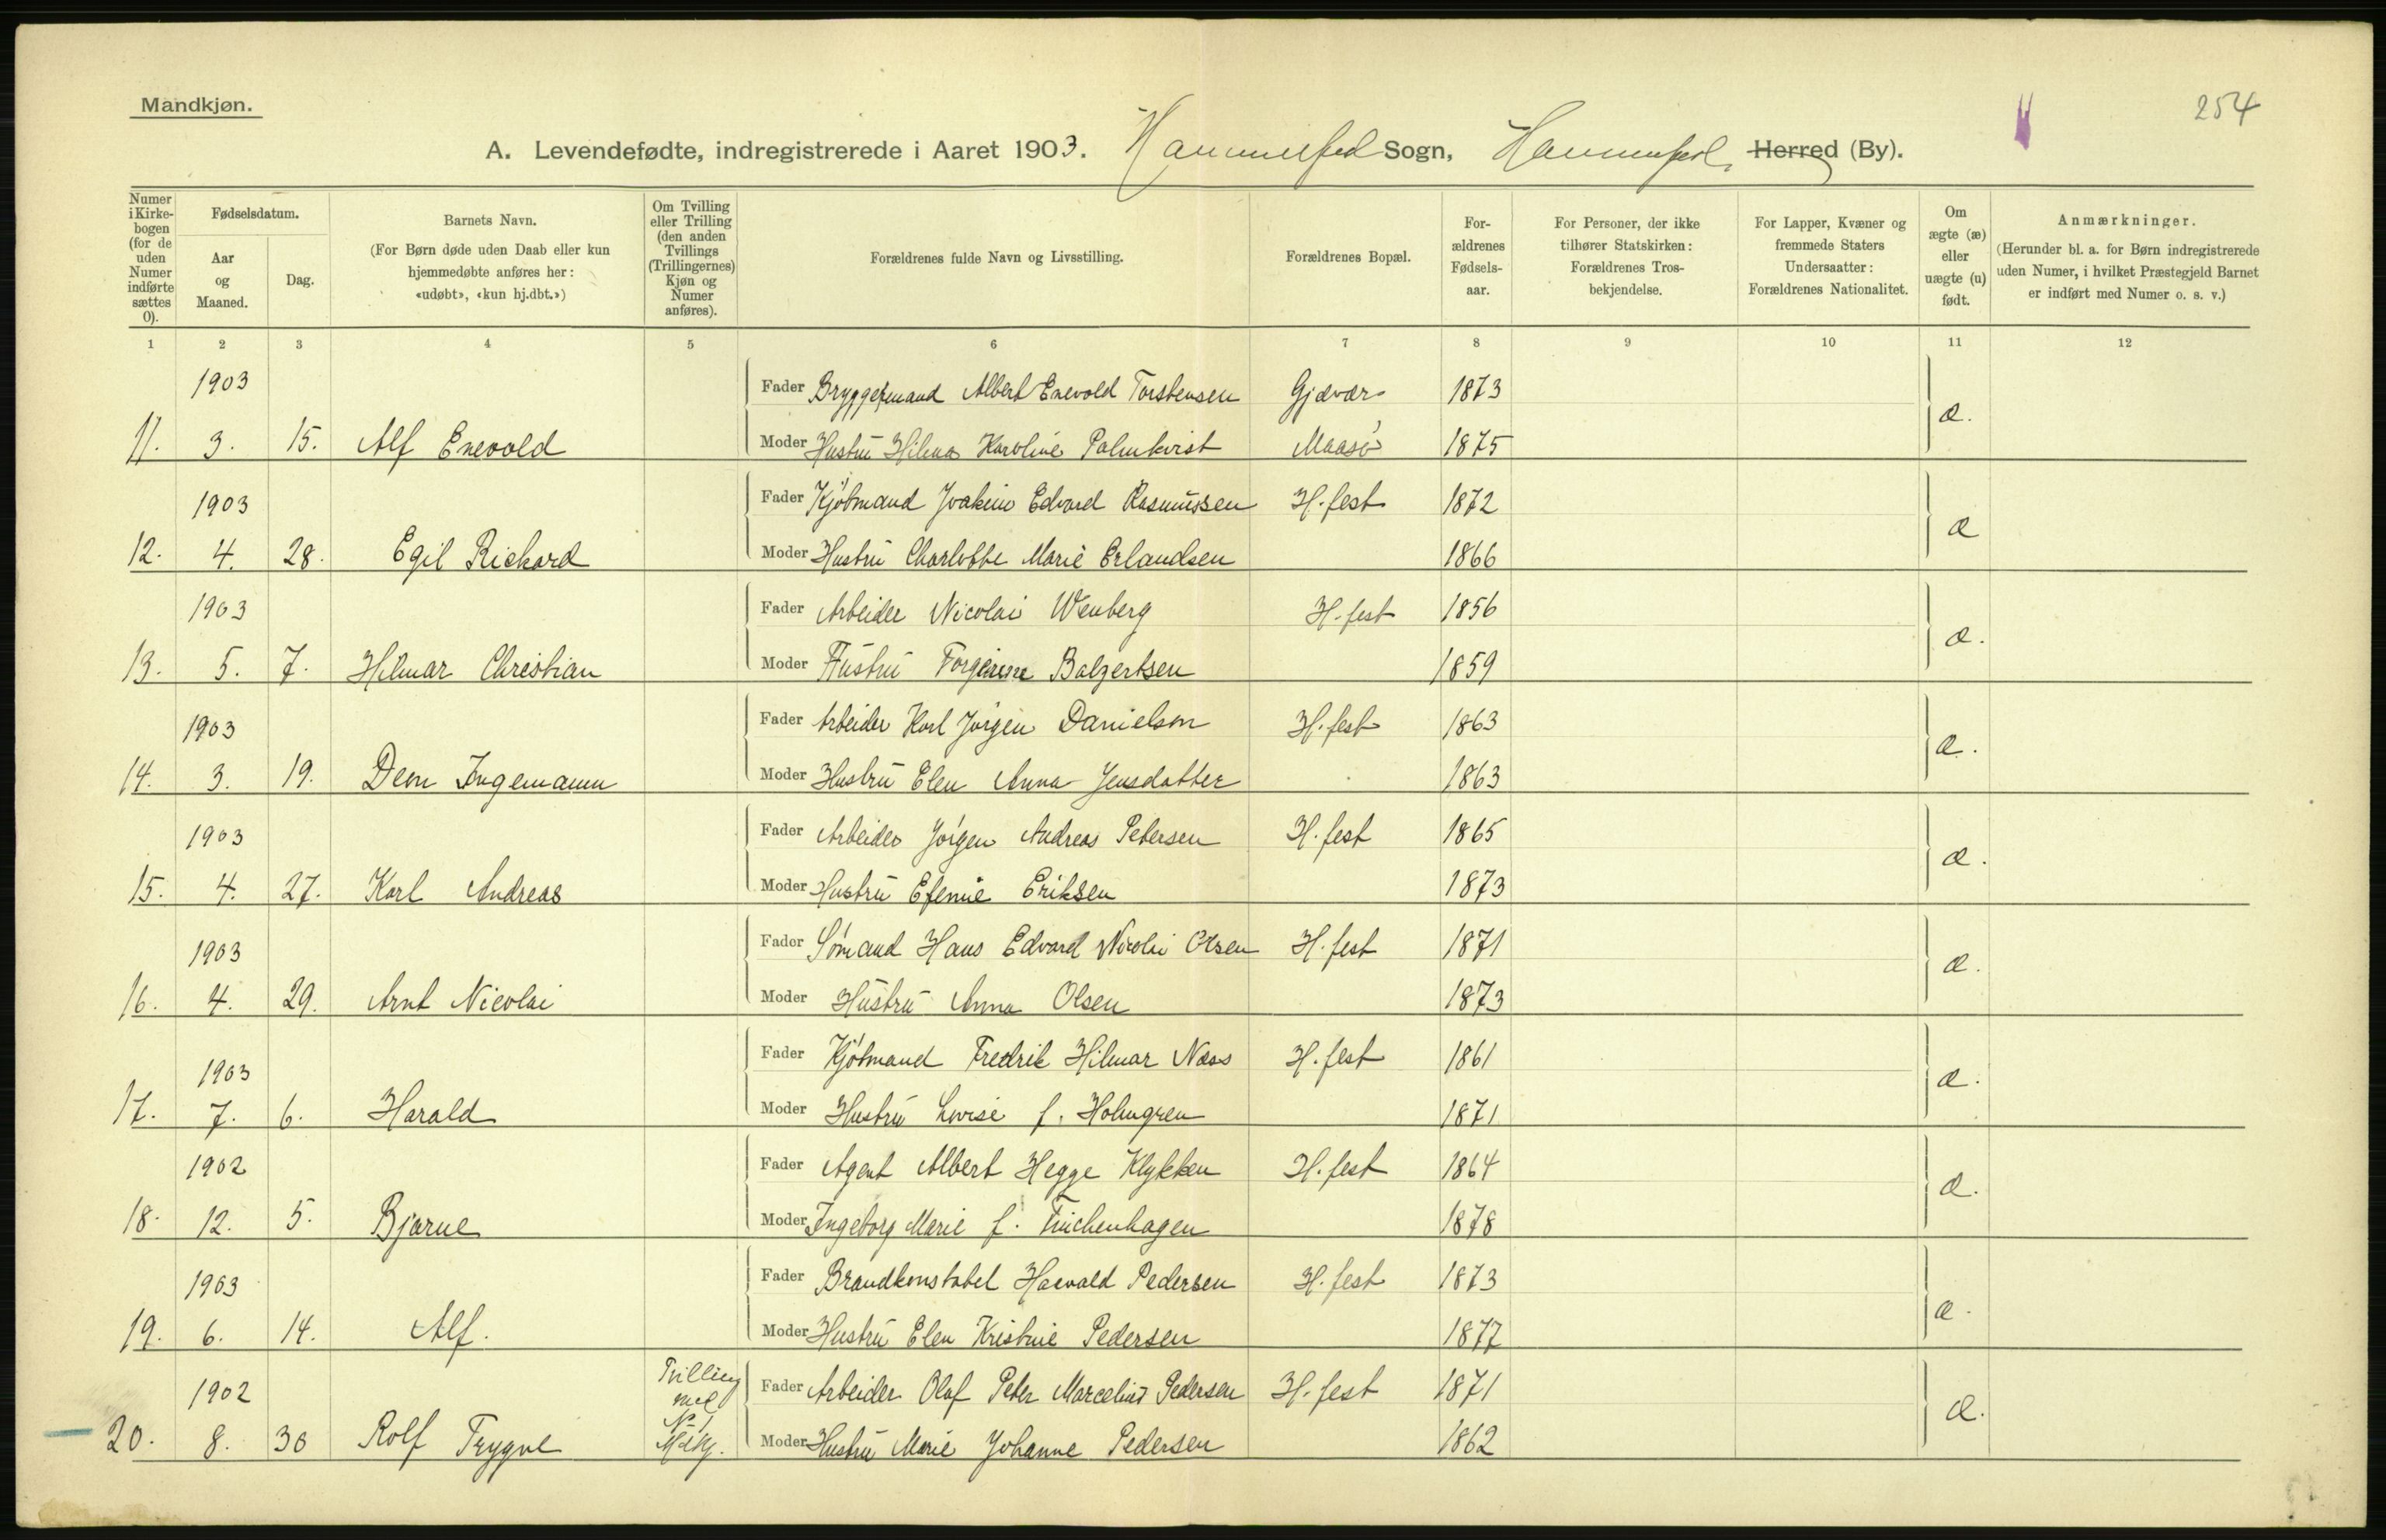 Mandkjøn.
254
A. Levendefødte, indregistrerede i Aaret 1903. Hammerfest Sogn, Hammerfest Herred (By).
Numer i Kirkebogen (for de uden Numer indførte sættes 0).
Fødselsdatum.
Aar og Maaned.
Dag.
Barnets Navn.
(For Børn døde uden Daab eller kun hjemmedøbte anføres her: «udøbt», «kun hj.dbt.»)
Om Tvilling eller Trilling (den anden Tvillings (Trillingernes) Kjøn og Numer anføres).
Forældrenes fulde Navn og Livsstilling.
Forældrenes Bopæl.
Forældrenes Fødselsaar.
For Personer, der ikke tilhører Statskirken: Forældrenes Trosbekjendelse.
For Lapper, Kvæner og fremmede Staters Undersaatter: Forældrenes Nationalitet.
Om ægte (æ) eller uægte (u) født.
Anmærkninger.
(Herunder bl. a. for Børn indregistrerede uden Numer, i hvilket Præstegjeld Barnet er indført med Numer o. s. v.)
1 2 3 4 5 6 7 8 9 10 11 12
1903 Fader Bryggemand Albert Enevold Torstensen Gjæsvær 1873 æ.
11. 3. 15. Alf Enevold Moder Hustru Hilma Karoline Palmkvist Maasö 1875
1903 Fader Kjöbmand Joakim Edvard Rasmussen H.fest 1872 æ
12. 4. 28. Egil Rickard Moder Hustru Charlotte Marie Erlandsen 1866
1903 Fader Arbeider Nicolai Wenberg H.fest 1856 æ.
13. 5. 7. Hilmar Christian Moder Hustru Balzertsen 1859
1903 Fader Arbeider Karl Jörgen Danielsen H.fest 1863 æ.
14. 3. 19. Ingemann Moder Hustru Elen Anna Jensdatter 1863
1903 Fader Arbeider Jörgen Andreas Petersen H.fest 1865 æ.
15. 4. 27. Karl Andreas Moder Hustru Efenie Eriksen 1873
1903 Fader Sömand Hans Edvard Nicolai Olsen H.fest 1871 æ.
16. 4. 29. Arnt Nicolai Moder Hustru Anna Olsen 1873
1903 Fader Kjöbmand Fredrik Hilmar Næss H.fest 1861 æ.
17. 7. 6. Harald Moder Hustru Lovise f. Holmgren 1871
1902 Fader Agent Albert Hegge Klykken H.fest 1864 æ.
18. 12. 5. Bjarne Moder Ingeborg Marie f. Finchenhagen 1878
1903 Fader Brandkonstabel Haevald Pedersen H.fest 1873 æ.
19. 6. 14. Alf. Moder Hustru Elen Kristine Pedersen 1877
1902 Tvilling med Fader Arbeider Olaf Peter Marcelius Pedersen H.fest 1871 æ.
20. 8. 30 Rolf Trygve No 1 Moder Hustru Marie Johanne Pedersen 1862